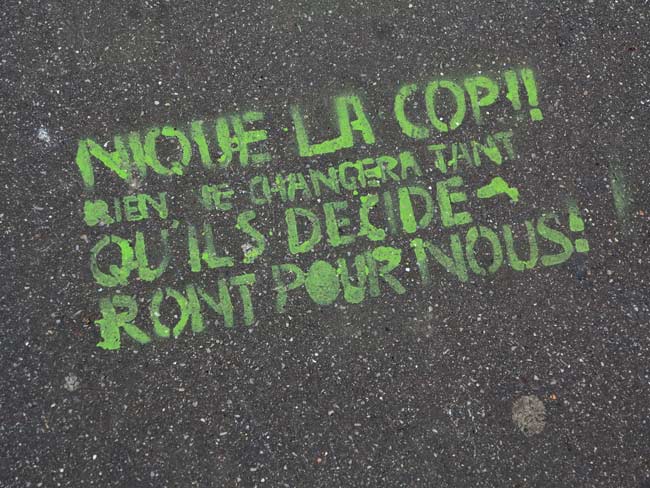 NIQUE LA COP!!
RIEN NE CHANGERA TANT
QU'ILS DECIDE-
RONT POUR NOUS!